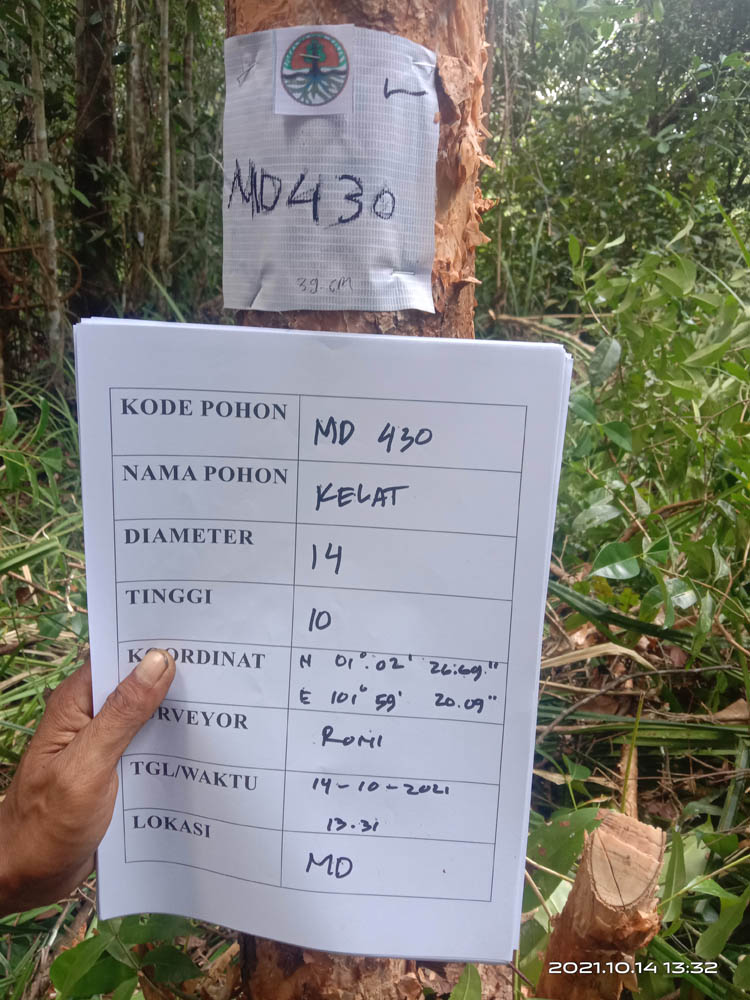 MD430
39 cm
KODE POHON MD 430
NAMA POHON KELAT
DIAMETER 14
TINGGI 10
KOORDINAT N 01°.02' 26.69"
E 101° 59' 20.09"
SURVEYOR ROMI
TGL/WAKTU 14-10-2021
13.31
LOKASI MD
2021.10.14 13:32